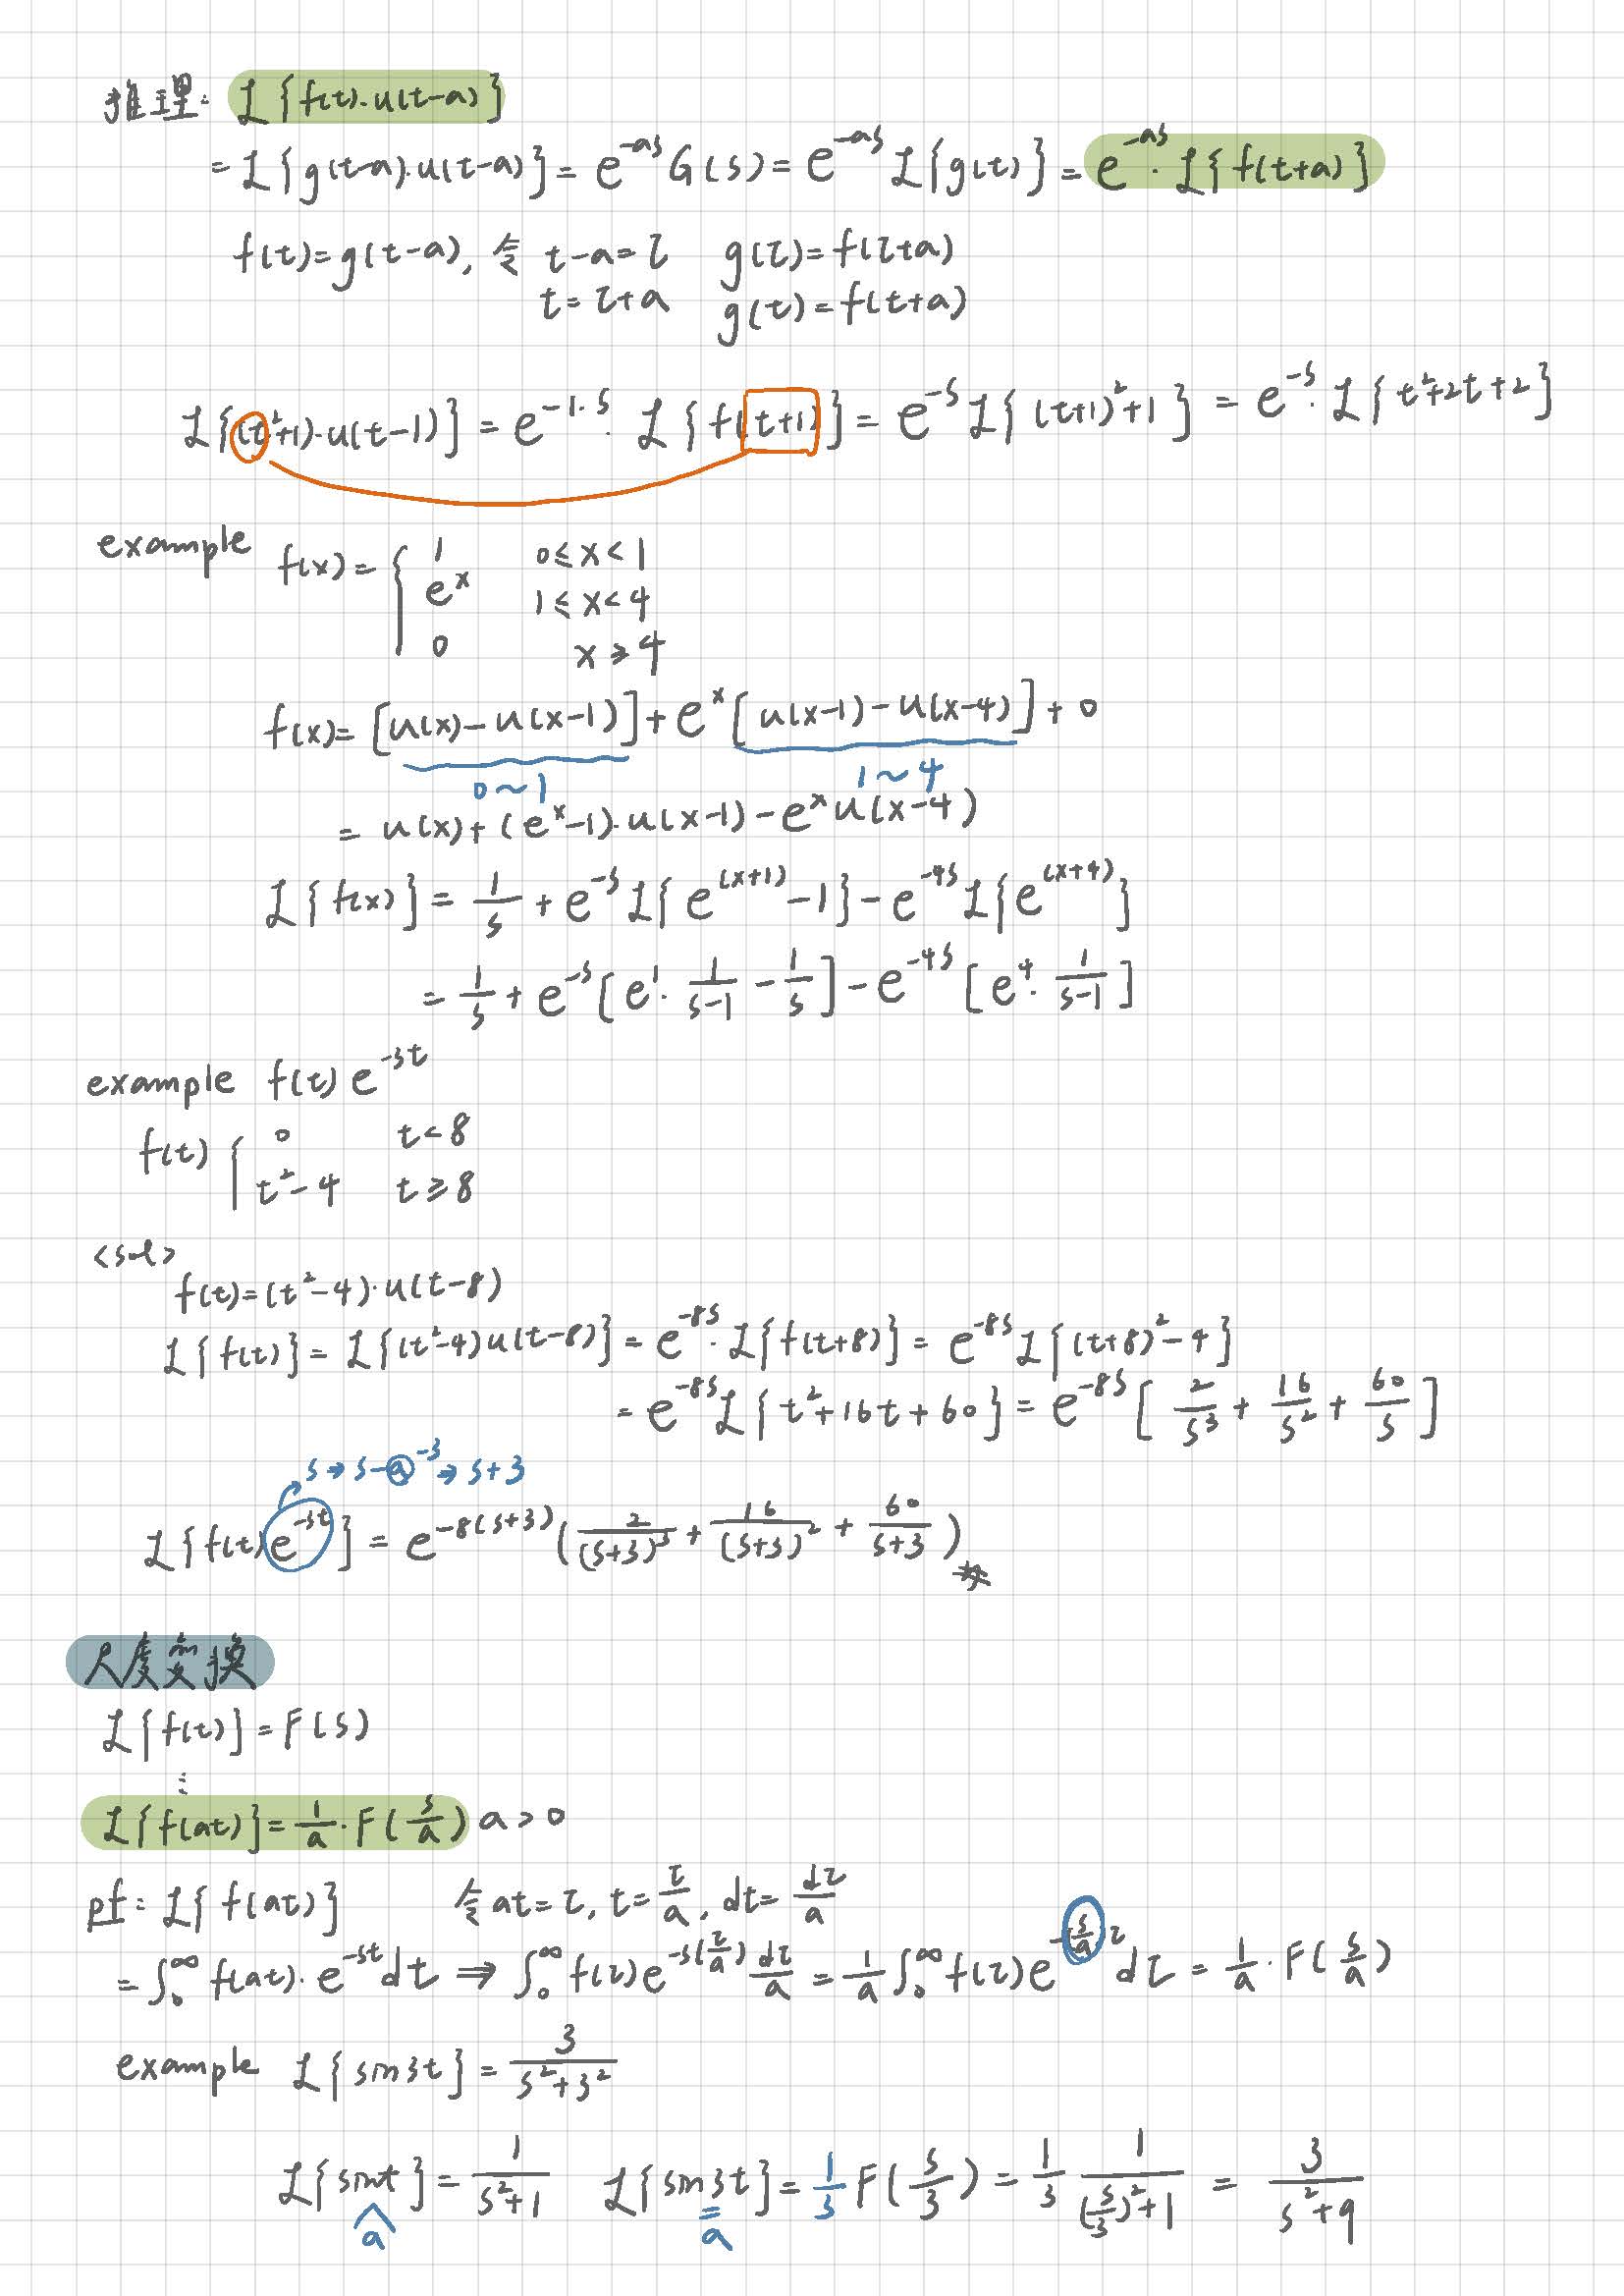 推理: ℒ{f(t)·u(t-a)}
= ℒ{g(t-a)·u(t-a)} = e^{-as} G(s) = e^{-as} ℒ{g(t)} = e^{-as}·ℒ{f(t+a)}
f(t)=g(t-a), 令 t-a=τ g(τ)=f(τ+a)
t=τ+a g(t)=f(t+a)
ℒ{(t²+1)·u(t-1)} = e^{-1·s}·ℒ{f(t+1)} = e^{-s} ℒ{(t+1)²+1} = e^{-s}·ℒ{t²+2t+2}
example f(x)= { 1 0≤x<1
e^x 1≤x<4
0 x≥4
f(x)= [u(x)-u(x-1)] + e^x [u(x-1)-u(x-4)] + 0
0~1 1~4
= u(x)+(e^x-1)·u(x-1)-e^x u(x-4)
ℒ{f(x)} = 1/s + e^{-s} ℒ{e^{(x+1)}-1} - e^{-4s} ℒ{e^{(x+4)}}
= 1/s + e^{-s} [e^1·1/(s-1) - 1/s] - e^{-4s} [e^4·1/(s-1)]
example f(t) e^{-3t}
f(t) { 0 t<8
t²-4 t≥8
<sol>
f(t)=(t²-4)·u(t-8)
ℒ{f(t)} = ℒ{(t²-4)u(t-8)} = e^{-8s}·ℒ{f(t+8)} = e^{-8s} ℒ{(t+8)²-4}
= e^{-8s} ℒ{t²+16t+60} = e^{-8s} [2/s³ + 16/s² + 60/s]
s→s-a^{-3}→s+3
ℒ{f(t)e^{-3t}} = e^{-8(s+3)} (2/(s+3)³ + 16/(s+3)² + 60/(s+3))
尺度変換
ℒ{f(t)} = F(s)
⋮
ℒ{f(at)} = 1/a·F(s/a) a>0
pf: ℒ{f(at)} 令at=τ, t=τ/a, dt=dτ/a
= ∫₀^∞ f(at)·e^{-st}dt ⇒ ∫₀^∞ f(τ)e^{-s(τ/a)} dτ/a = 1/a ∫₀^∞ f(τ)e^{-(s/a)τ} dτ = 1/a·F(s/a)
example ℒ{sin3t} = 3/(s²+3²)
ℒ{sint} = 1/(s²+1) ℒ{sin3t} = 1/3 F(s/3) = 1/3 1/((s/3)²+1) = 3/(s²+9)
a a